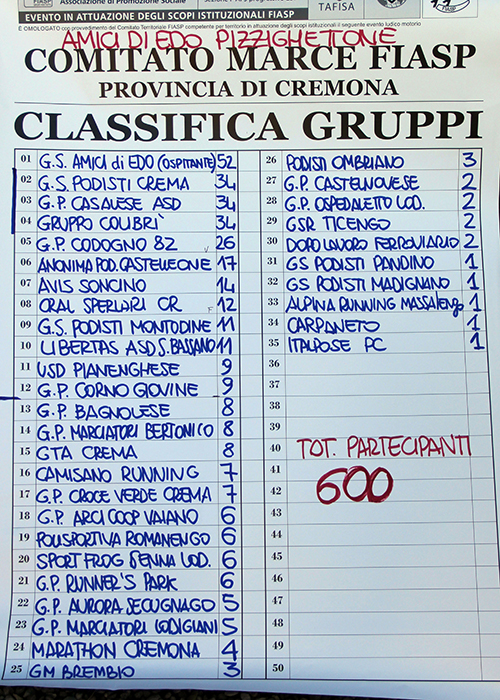 Associazione di Promozione Sociale
TAFISA
FIASP
EVENTO IN ATTUAZIONE DEGLI SCOPI ISTITUZIONALI FIASP
È OMOLOGATO con provvedimento del Comitato Territoriale FIASP competente per territorio in attuazione degli scopi istituzionali il seguente evento ludico motorio
AMICI DI EDO PIZZIGHETTONE
COMITATO MARCE FIASP
PROVINCIA DI CREMONA
CLASSIFICA GRUPPI
01 G.S. AMICI di EDO (OSPITANTE) 52
02 G.S. PODISTI CREMA 34
03 G.P. CASALESE ASD 34
04 GRUPPO COLIBRÌ 34
05 G.P. CODOGNO 82 26
06 ANONIMA POD. CASTELLEONE 17
07 AVIS SONCINO 14
08 CRAL SPERLARI CR 12
09 G.S. PODISTI MONTODINE 11
10 LIBERTAS ASD S. BASSANO 11
11 USD PIANENGHESE 9
12 G.P. CORNO GIOVINE 9
13 G.P. BAGNOLESE 8
14 G.P. MARCIATORI BERTONICO 8
15 GTA CREMA 8
16 CAMISANO RUNNING 7
17 G.P. CROCE VERDE CREMA 7
18 G.P. ARCI COOP VAIANO 6
19 POLISPORTIVA ROMANENGO 6
20 SPORT FROG SENNA LOD. 6
21 G.P. RUNNER'S PARK 6
22 G.P. AURORA SECUGNAGO 5
23 G.P. MARCIATORI LODIGIANI 5
24 MARATHON CREMONA 4
25 GM BREMBIO 3
26 PODISTI OMBRIANO 3
27 G.P. CASTELNOVESE 2
28 G.P. OSPEDALETTO LOD. 2
29 GSR TICENGO 2
30 DOPO LAVORO FERROVIARIO 2
31 GS PODISTI PANDINO 1
32 GS PODISTI MADIGNANO 1
33 ALPINA RUNNING MASSALENGO 1
34 CARPANETO 1
35 ITALPOSE PC 1
36
37
38
39
40 TOT. PARTECIPANTI
41
42 600
43
44
45
46
47
48
49
50